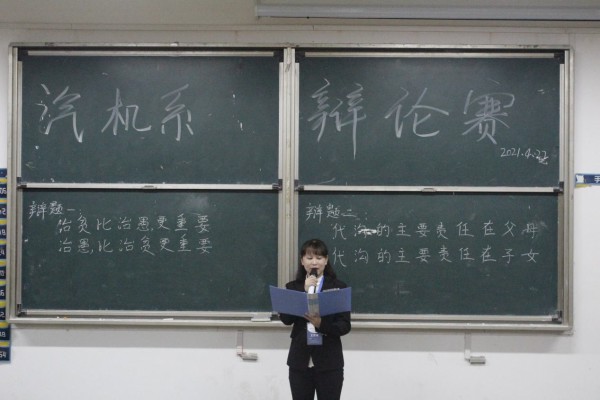 汽机系
辩论赛
2021.4.22
辩题一：
治贫比治愚更重要
治愚比治贫更重要
辩题二：
代沟的主要责任在父母
代沟的主要责任在子女